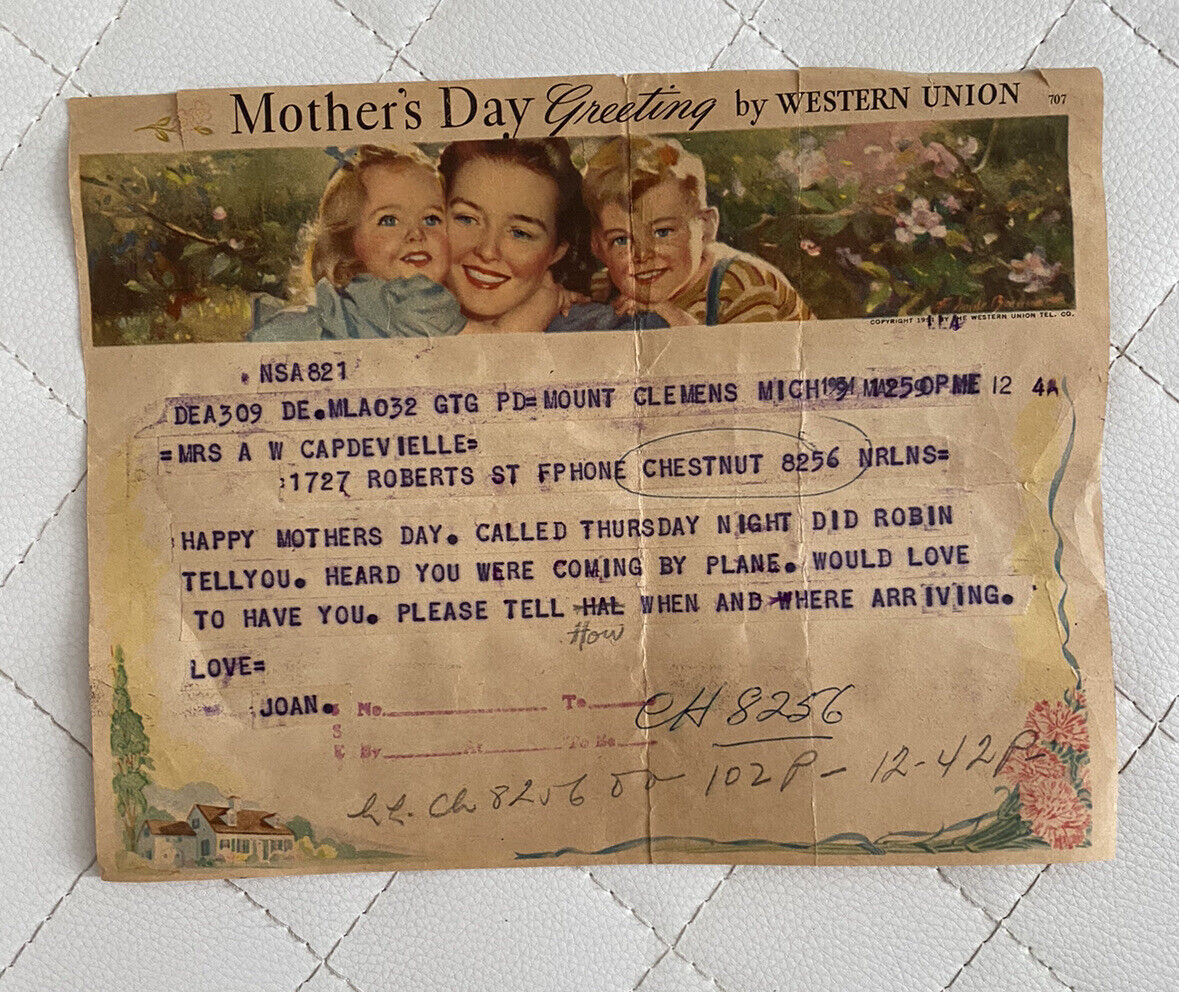 Mother's Day Greeting by WESTERN UNION 707
COPYRIGHT BY THE WESTERN UNION TEL. CO.
NSA821
DEA309 DE.MLA032 GTG PD=MOUNT CLEMENS MICH PME 12 4A
=MRS A W CAPDEVIELLE=
:1727 ROBERTS ST FPHONE CHESTNUT 8256 NRLNS=
HAPPY MOTHERS DAY. CALLED THURSDAY NIGHT DID ROBIN
TELLYOU. HEARD YOU WERE COMING BY PLANE. WOULD LOVE
TO HAVE YOU. PLEASE TELL HAL WHEN AND WHERE ARRIVING.
How
LOVE=
JOAN.
No. To
CH 8256
By At To Be
Ch 8256 102P - 12-42P-